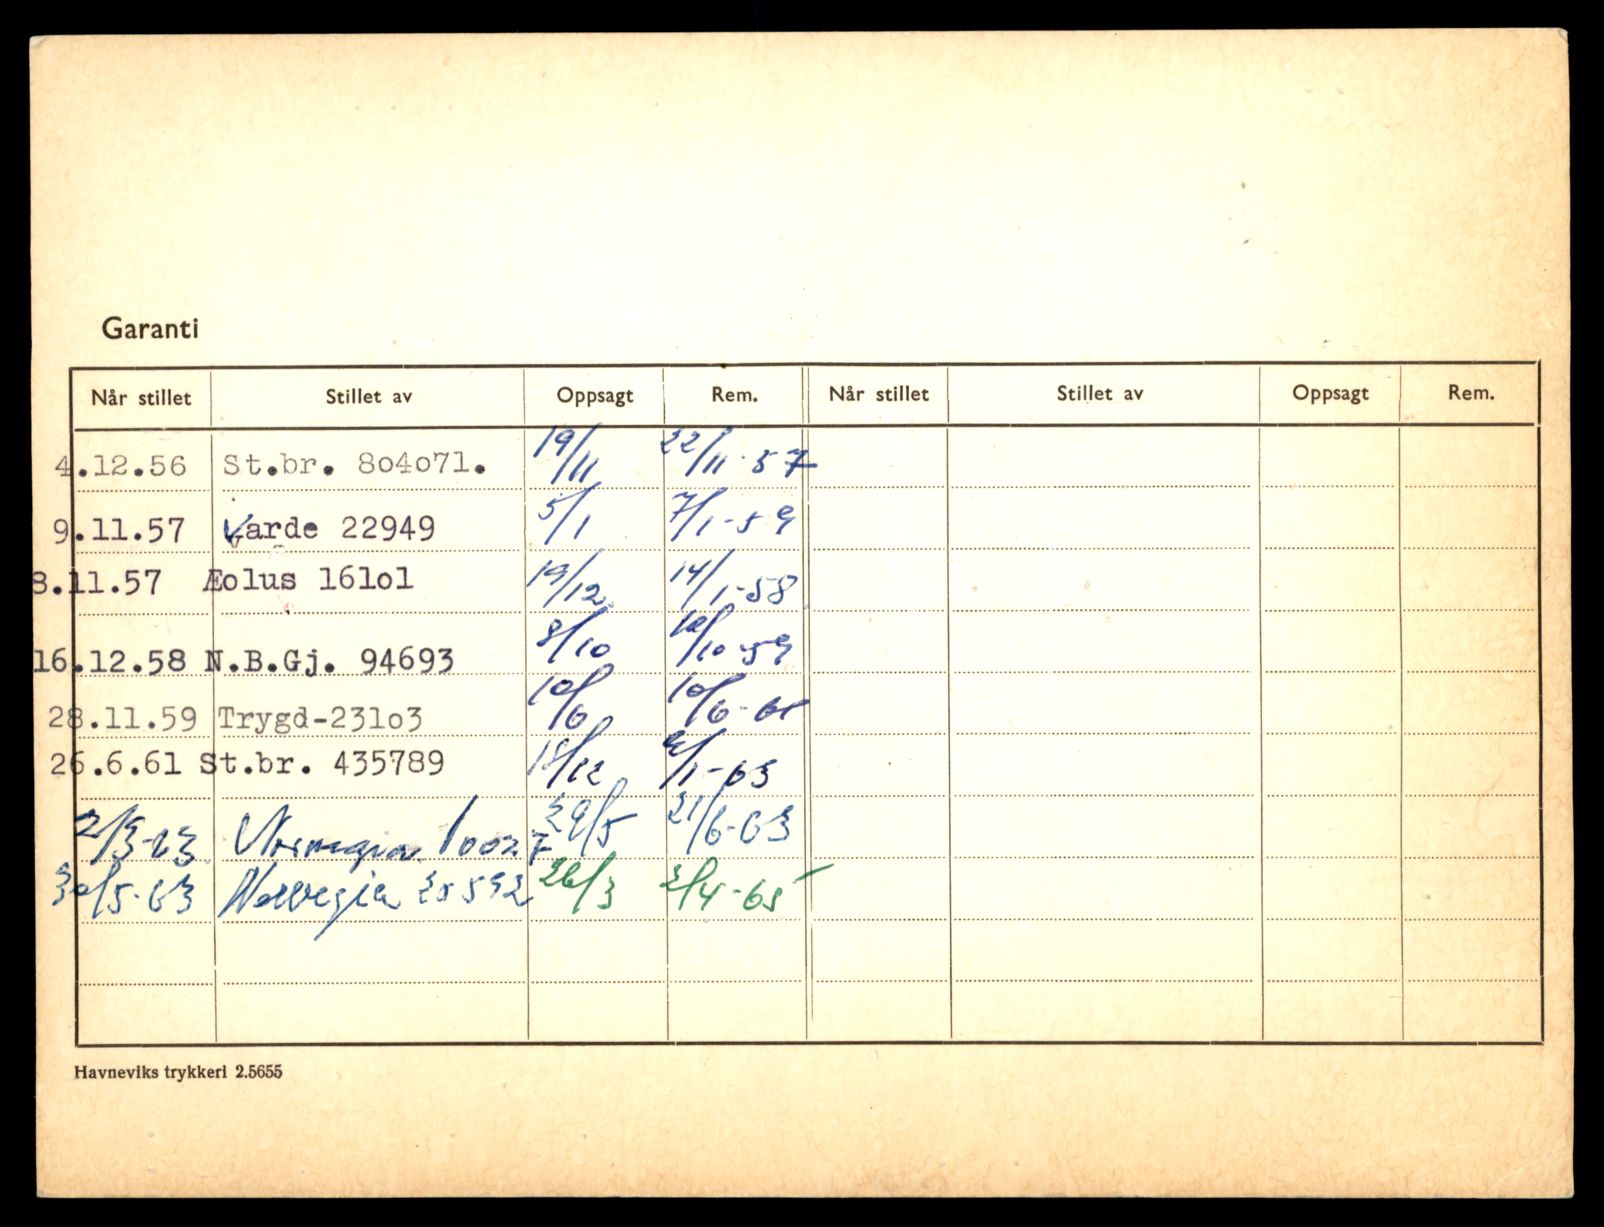 Garanti
Når stillet Stillet av Oppsagt Rem. Når stillet Stillet av Oppsagt Rem.
4.12.56 St.br. 8o4o71. 19/11 22/11-57
9.11.57 Varde 22949 5/1 7/1-59
8.11.57 Æolus 161o1 19/12 14/1-58
16.12.58 N.B.Gj. 94693 8/10 10/10-59
28.11.59 Trygd-231o3 10/6 10/6-61
26.6.61 St.br. 435789 18/12 2/1-63
2/3-63 Norwegia 10027 29/5 21/6-63
30/5-63 Norwegia 25592 26/3 2/4-65
Havneviks trykkeri 2.5655